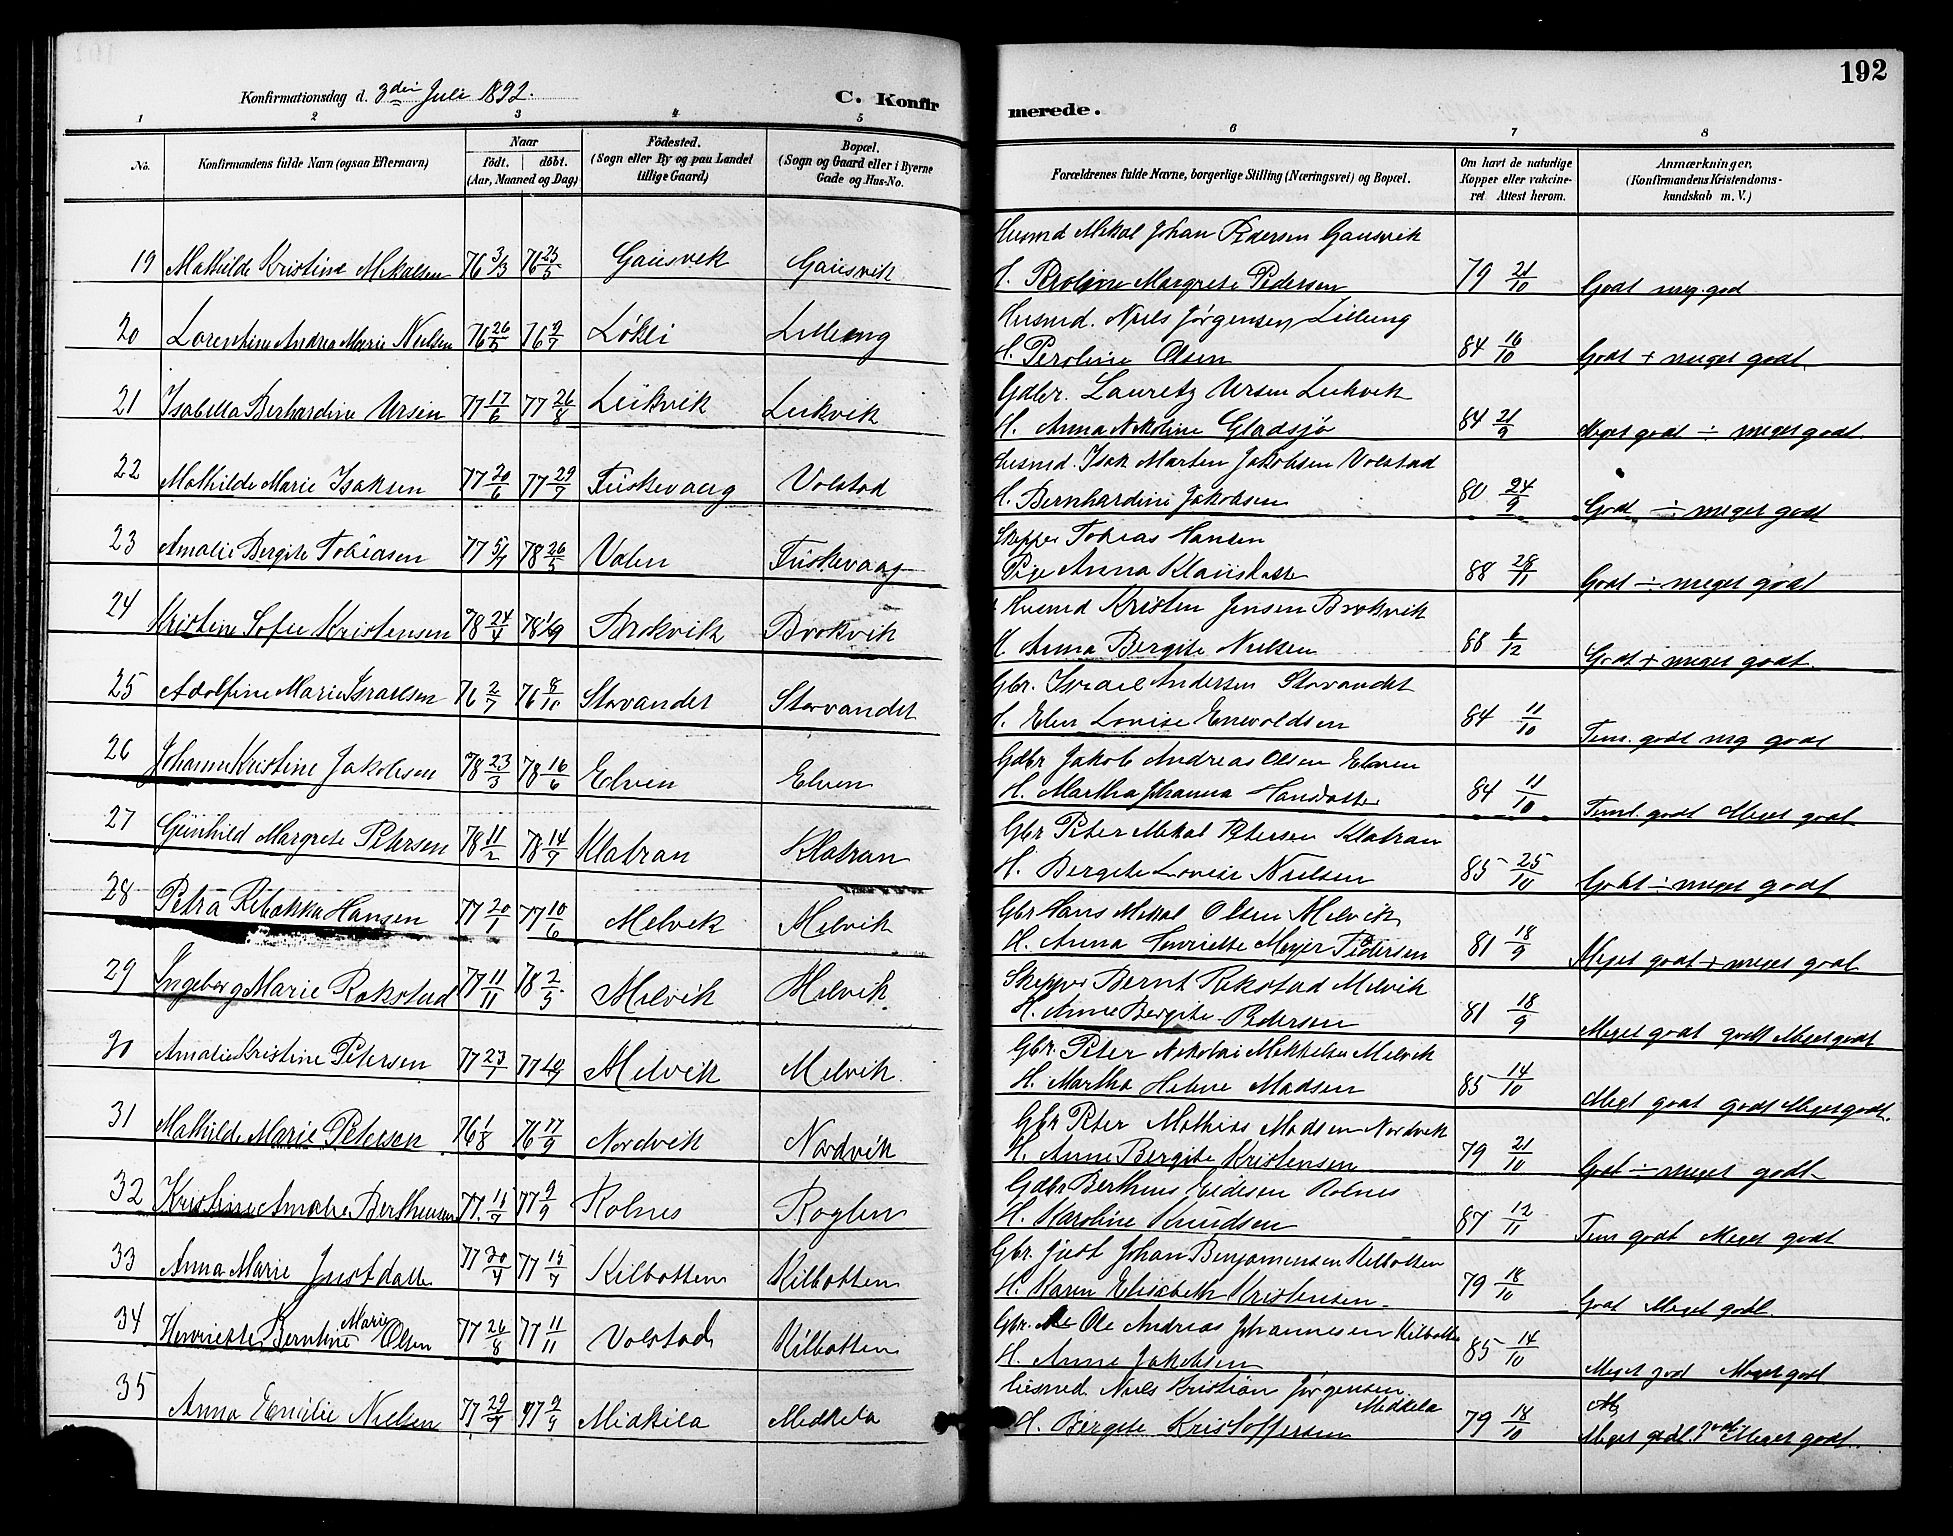 192
Konfirmationsdag d. 3die Juli 1892.
C. Konfirmerede.
1 2 3 4 5 6 7 8
No. Konfirmandens fulde Navn (ogsaa Efternavn) Naar født. døbt. (Aar, Maaned og Dag) Fødested. (Sogn eller By og paa Landet tillige Gaard) Bopæl. (Sogn og Gaard eller i Byerne Gade og Hus-No. Forældrenes fulde Navne, borgerlige Stilling (Næringsvei) og Bopæl. Om havt de naturlige Kopper eller vakcineret Attest herom. Anmærkninger, (Konfirmandens Kristendomskundskab m. V.)
Husmd Mikal Johan Pedersen Gausvik
19 Mathilde Kristine Mikalsen 76 3/3 76 25/5 Gausvik Gausvik H. Peroline Margrete Pedersen 79 21/10 Godt meg. god
Husmd. Niels Jørgensen Lilleng
20 Lorentine Andrea Marie Nielsen 76 26/5 76 9/7 Løkli Lilleng H. Peroline Olsen 84 16/10 Godt + meget godt.
Gdbr. Lauretz Ursin Leikvik
21 Isabella Berhardine Ursin 77 17/6 77 26/8 Leikvik Leikvik H. Anna Nikoline Gladsjø 84 21/9 Meget godt ÷ meget godt.
Husmd. Isak Marten Jakobsen Volstad
22 Mathilde Marie Isaksen 77 20/6 77 29/7 Fuskevaag Volstad H. Bernhardine Jakobsen 80 24/9 God ÷ meget godt
Skipper Tobias Hansen
23 Amalie Bergite Tobiasen 77 5/7 78 26/5 Valen Fuskevaag Pige Anna Klausdatter 88 28/11 Godt ÷ meget godt
Husmd Kristen Jensen Brokvik
24 Kristine Sofie Kristensen 78 24/4 78 1/9 Brokvik Brokvik H. Anna Bergite Nielsen 88 6/12 Godt + meget godt
Gbr. Israel Andersen Storvandet
25 Adolfine Marie Israelsen 76 2/7 76 8/10 Storvandet Storvandet H. Elen Lovise Enevoldsen 84 11/10 Tem. godt meg godt
Gdbr Jakob Andreas Olsen Elven
26 Johanne Kristine Jakobsen 78 23/3 78 16/6 Elven Elven H. Martha Johanna Hansdatter 84 11/10 Teml. godt Meget godt
Gbr Peter Mikal Petersen Klatran
27 Gunhild Margrete Petersen 78 11/2 78 14/7 Klatran Klatran H. Bergite Lovise Nielsen 85 25/10 Godt ÷ meget godt
Gbr Hans Mikal Olsen Melvik
28 Petra Rebekka Hansen 77 20/1 77 10/6 Melvik Melvik H. Anna Henriette Meyer Pedersen 81 18/9 Meget godt + meget godt
Skipper Bernt Rokstad Melvik
29 Ingeborg Marie Rokstad 77 11/11 78 2/5 Melvik Melvik H. Anne Bergite Pedersen 81 18/9 Meget godt godt Meget godt
Gbr. Peter Nikolai Mikkelsen Melvik
30 Amalie Kristine Petersen 77 27/1 77 10/7 Melvik Melvik H. Martha Helene Madsen 85 14/10 Meget godt godt Meget godt.
Gbr Peter Mathias Madsen Nordvik
31 Mathilde Marie Petersen 76 1/8 76 17/9 Nordvik Nordvik H. Anne Bergite Kristensen 79 21/10 Godt ÷ meget godt
Gdbr Berthens Eidesen Rolnes
32 Kristine Amalie Berthensen 77. 11/7 77 9/9 Rolnes Roglen H. Karoline Knudsen 87 12/11 Tem godt Meget godt
Gbr. Just Johan Benjaminsen Kilbotten
33 Anna Marie Justdatter 77 20/4 77 15/7 Kilbotten Kilbotten H. Karen Elisabeth Kristensen 79 18/10 Godt Meget godt
Gbr. Ole Andreas Johannesen Kilbotten
34 Henriette Berntine Marie Olsen 77 26/8 77 11/11 Volstad Kilbotten H. Anne Jakobsen 85 14/10 Meget god Meget godt
Husmd. Niels Kristian Jørgensen Midkila
35 Anna Emilie Nielsen 77 29/7 77 9/9 Midkila Midkila H. Bergite Kristoffersen 79 18/10 Meget godt. godt Meget godt.